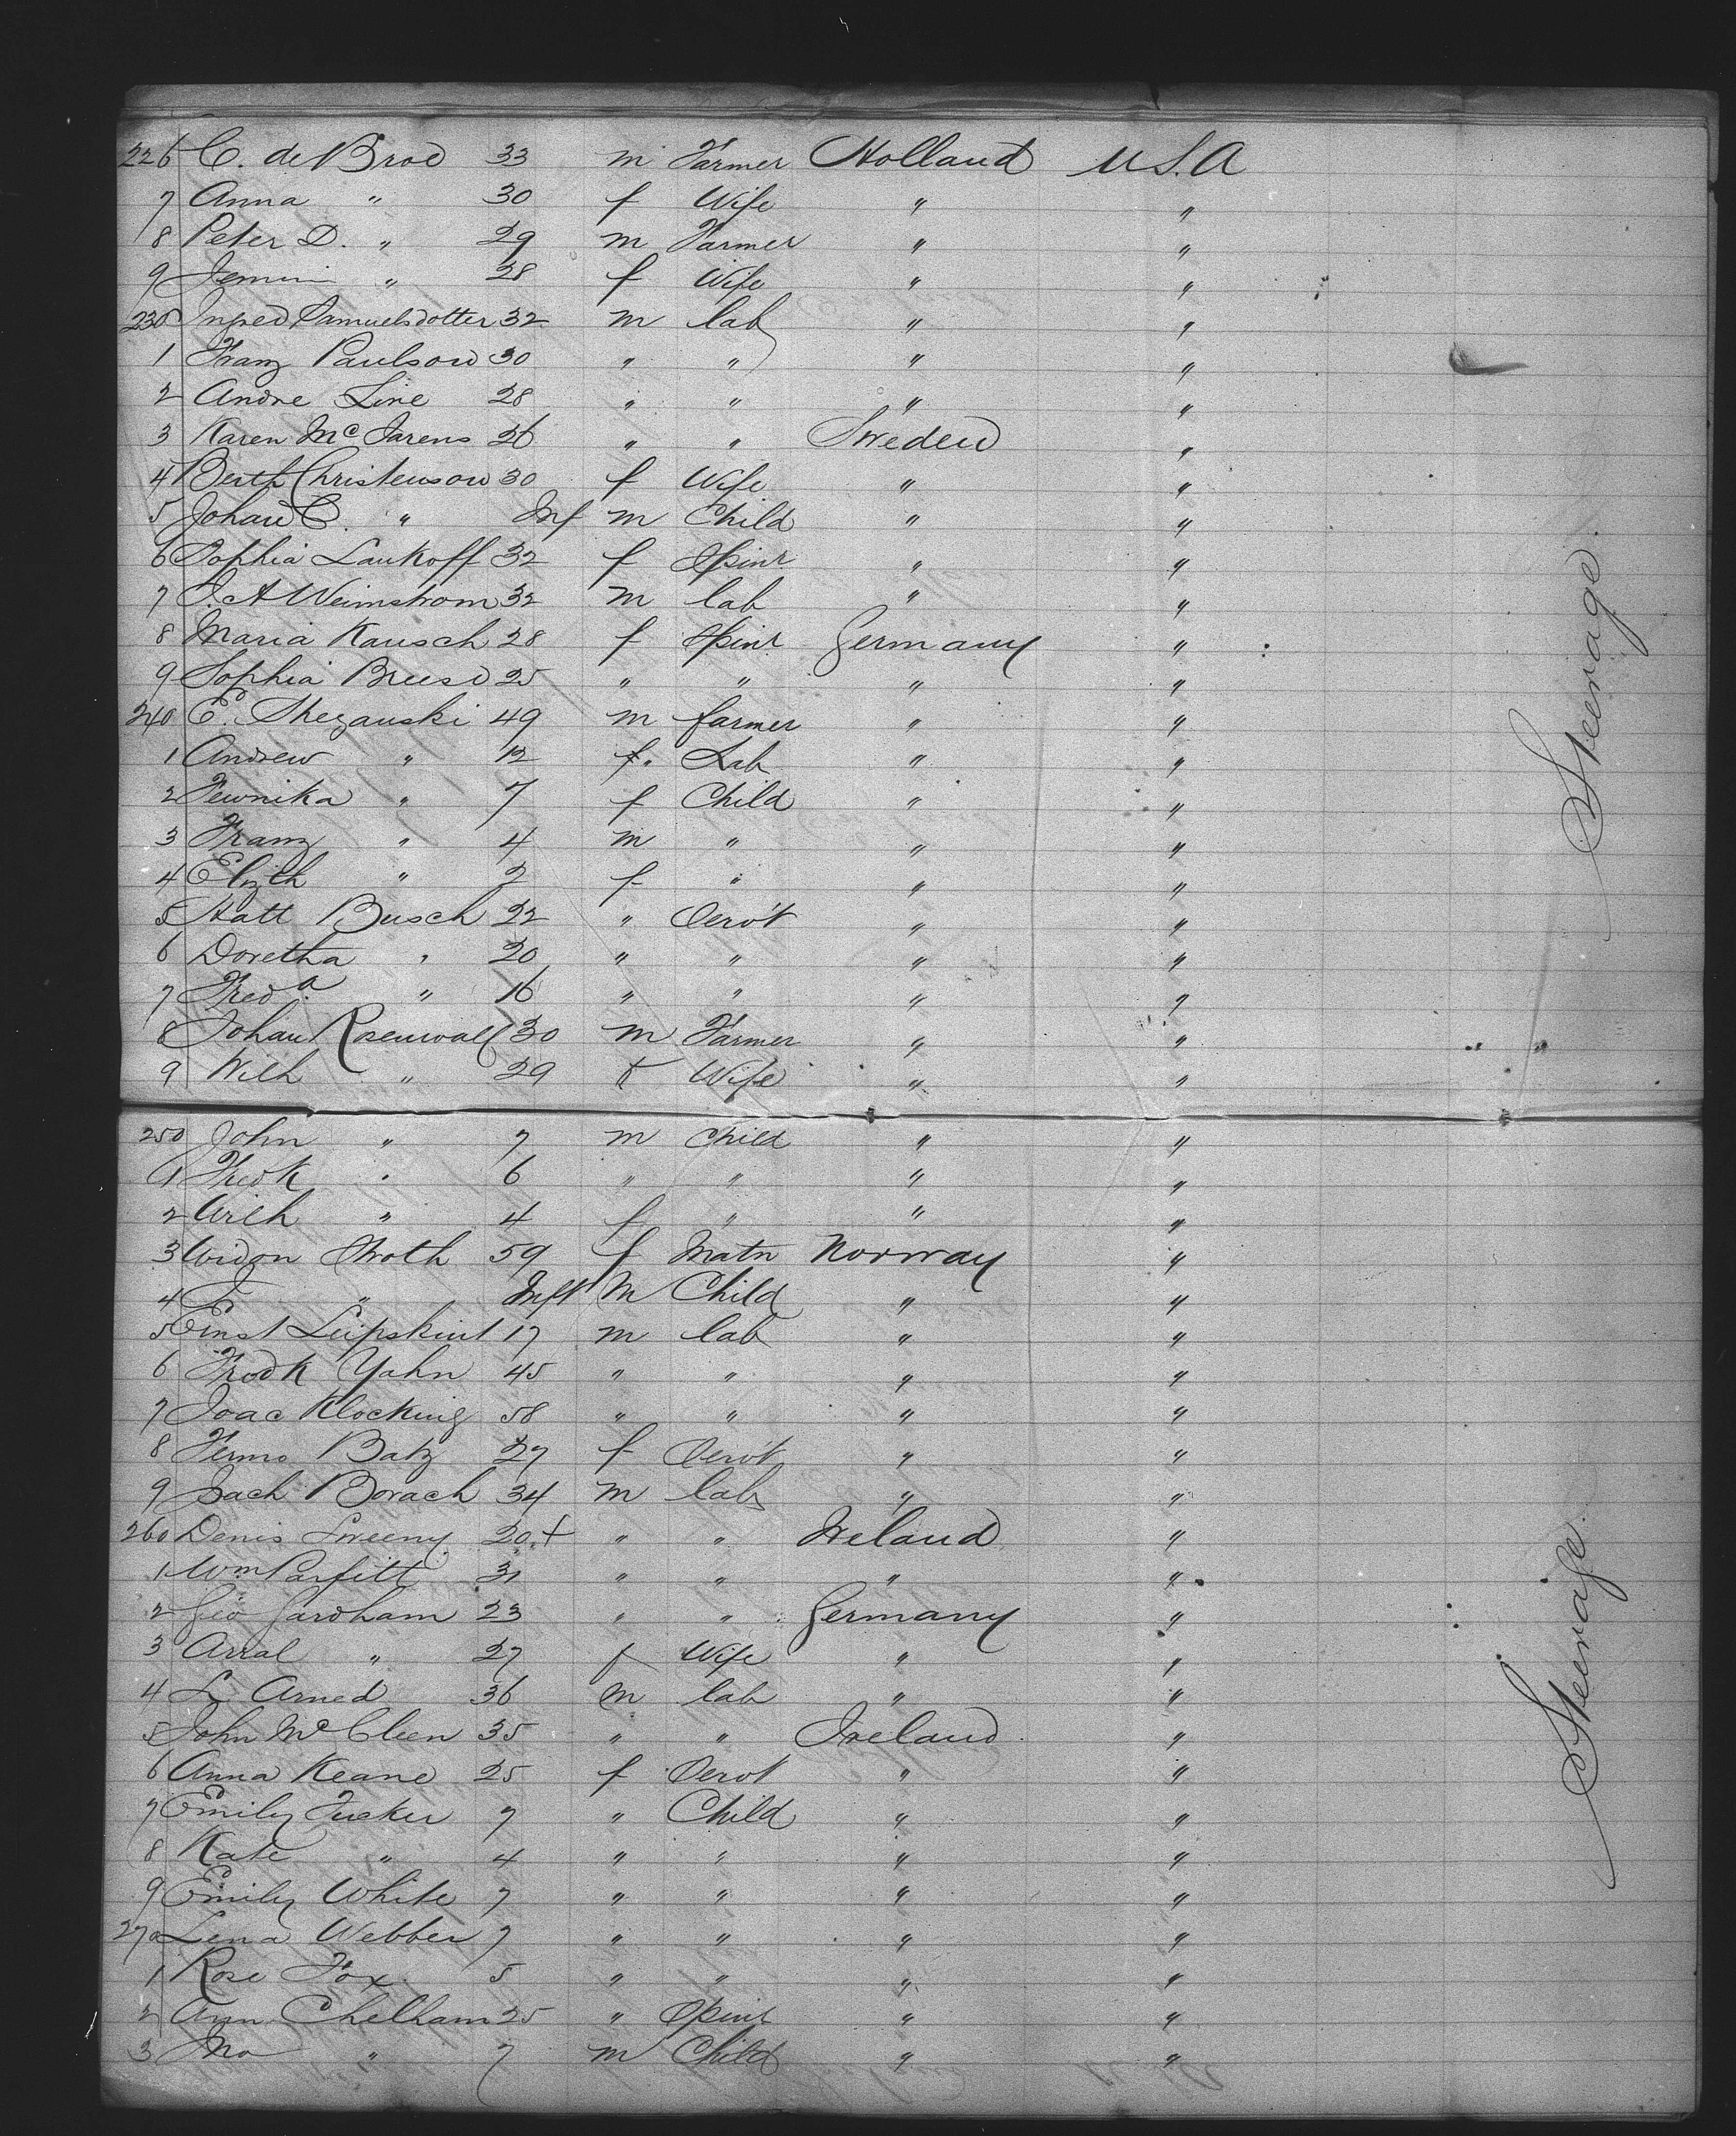 226 C. de Broe 33 m Farmer Holland U.S.A
7 Anna " 30 f Wife " "
8 Peter D. " 29 m Farmer " "
9 " 28 f Wife " "
230 Ingred Samuelsdotter 32 m lab " "
1 Franz Paulson 30 " " " "
2 Andre Line 28 " " " "
3 Karen Mc Jarens 26 " " Sweden "
4 Berth Christenson 30 f Wife " "
5 Johan C. " Inf m Child " "
6 Sophia Laukoff 32 f Spinr " "
7 J. A Weimstrom 32 m lab " "
8 Maria Kausch 28 f Spinr Germany "
9 Sophia 25 " " " "
240 E. Shezauski 49 m farmer " "
1 Andrew " 12 f. Lab " "
2 Fewnika " 7 f Child " "
3 Franz " 4 m " " "
4 Elizth " 2 f " " "
5 Hatt Busch 22 " " "
6 Doretha " 20 " " " "
7 Freda " 16 " " " "
8 Johan Rosenwall 30 m Farmer " "
9 Wilh " 29 f Wife " "
250 John " 7 m Child " "
1 Fredk " 6 " " " "
2 Wilh " 4 f " " "
3 Stroth 59 f Matn Norway "
4 " Inft m Child " "
5 Ernst 17 m lab " "
6 Fredk Yahn 45 " " " "
7 Joac Klocking 58 " " " "
8 Fermo Batz 27 f " "
9 Jach Borach 34 m lab " "
260 Denis Sweeny 20 + " " Ireland "
1 Wm Parfitt 31 " " " "
2 Geo Jardham 23 " " Germany "
3 Arral " 27 f Wife " "
4 L Arned 36 m lab " "
5 John McCleen 35 " " Ireland "
6 Anna Keane 25 f " "
7 Emily Tucker 7 " Child " "
8 Kate " 4 " " " "
9 Emily White 7 " " " "
270 Lena Webber 7 " " " "
1 Rose Fox 5 " " " "
2 Ann Chelham 25 " Spinr " "
3 Jno " 7 m Child " "
Steerage.
Steerage.